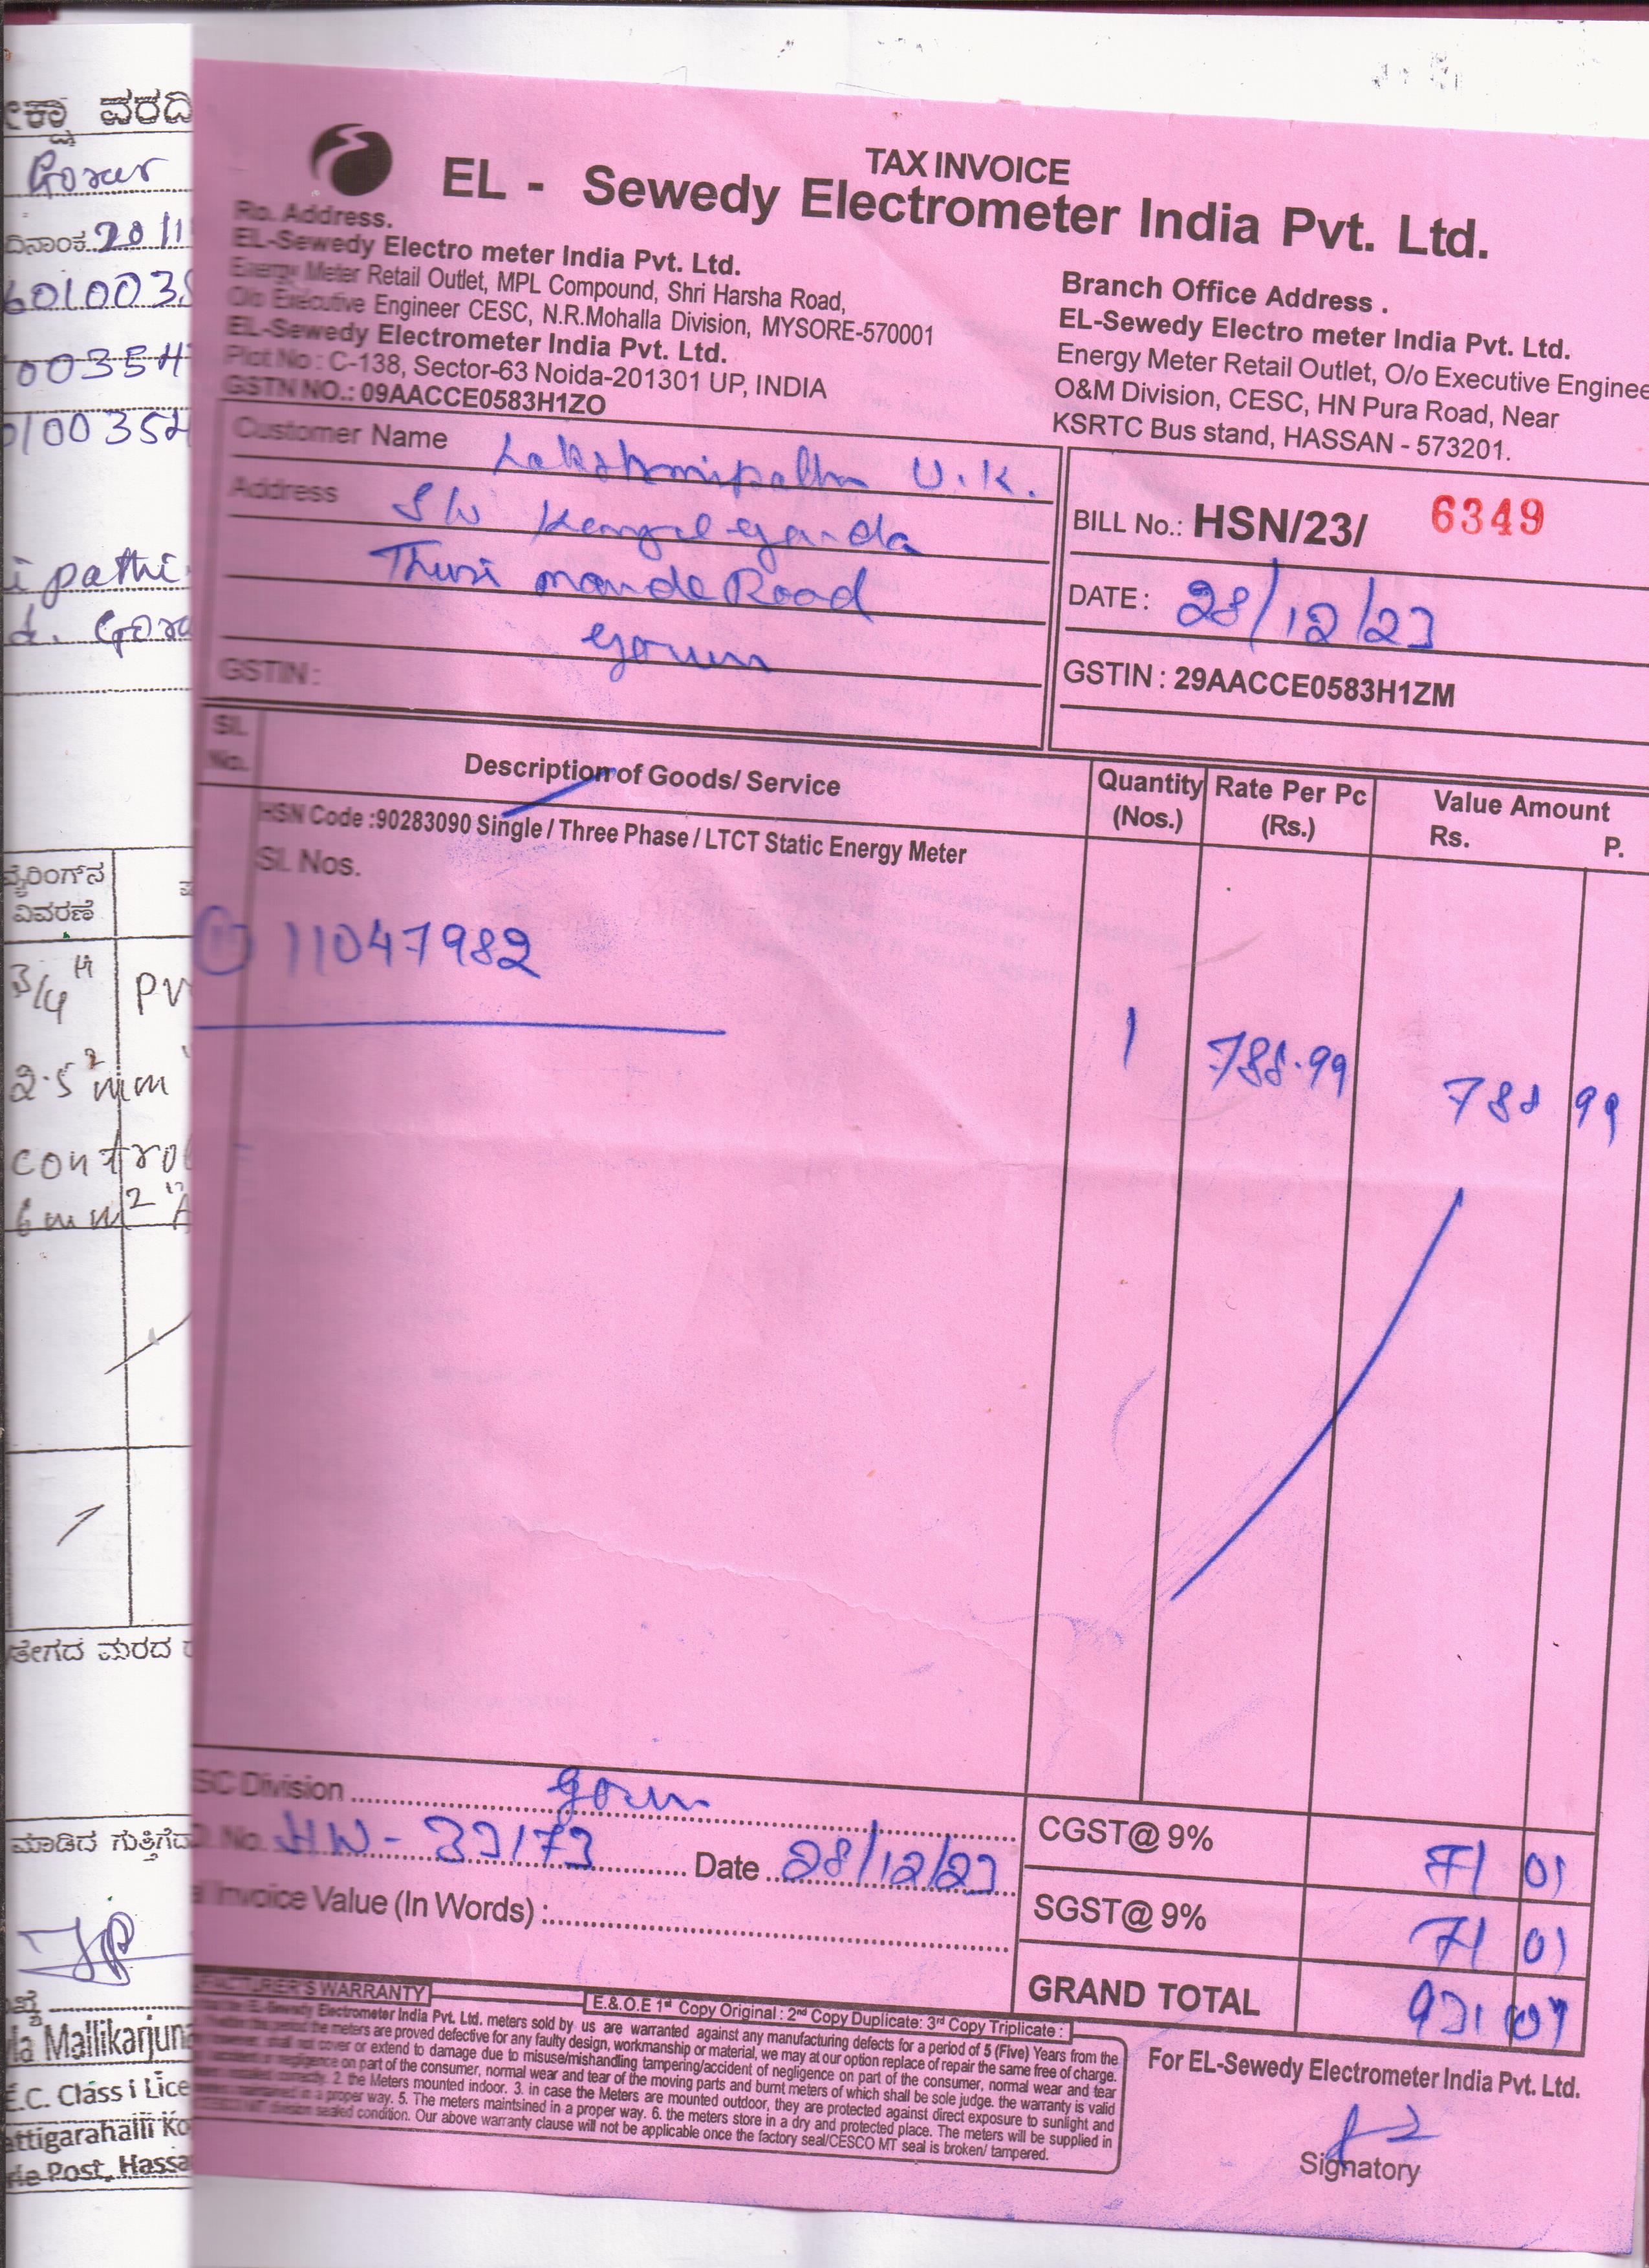 ವರದಿ
Gorur
ದಿನಾಂಕ 20/11
601003
00354
0100354
ipathi
d. Goru
ವೈರಿಂಗ್‌ನ
ವಿವರಣೆ
3/4" PV
2.5 mm²
control
6mm²
ಮರದ
ಮಾಡಿದ
Mallikarjuna
E.C. Class i Lice
attigarahalli Ko
Post, Hassa
TAX INVOICE
EL - Sewedy Electrometer India Pvt. Ltd.
Ro. Address.
EL-Sewedy Electro meter India Pvt. Ltd.
Energy Meter Retail Outlet, MPL Compound, Shri Harsha Road,
O/o Executive Engineer CESC, N.R.Mohalla Division, MYSORE-570001
EL-Sewedy Electrometer India Pvt. Ltd.
Plot No : C-138, Sector-63 Noida-201301 UP, INDIA
GSTN NO.: 09AACCE0583H1ZO
Branch Office Address .
EL-Sewedy Electro meter India Pvt. Ltd.
Energy Meter Retail Outlet, O/o Executive Enginee
O&M Division, CESC, HN Pura Road, Near
KSRTC Bus stand, HASSAN - 573201.
Customer Name Lakshmipathi U.K.
Address S/o
Road
Gorur
GSTIN :
BILL No.: HSN/23/ 6349
DATE : 28/12/23
GSTIN : 29AACCE0583H1ZM
Sl. No. Description of Goods/ Service Quantity (Nos.) Rate Per Pc (Rs.) Value Amount Rs. P.
HSN Code :90283090 Single / Three Phase / LTCT Static Energy Meter
Sl. Nos.
11047982
1 788.99 788 99
SC Division Gorur
No. HN-33173 Date 28/12/23
Invoice Value (In Words) :
CGST@ 9% 71 01
SGST@ 9% 71 01
GRAND TOTAL 931 01
FACTURER'S WARRANTY
E.&.O.E 1st Copy Original : 2nd Copy Duplicate: 3rd Copy Triplicate :
EL-Sewedy Electrometer India Pvt. Ltd. meters sold by us are warranted against any manufacturing defects for a period of 5 (Five) Years from the
the period the meters are proved defective for any faulty design, workmanship or material, we may at our option replace of repair the same free of charge.
however, shall not cover or extend to damage due to misuse/mishandling tampering/accident of negligence on part of the consumer, normal wear and tear
negligence on part of the consumer, normal wear and tear of the moving parts and burnt meters of which shall be sole judge. the warranty is valid
correctly. 2. the Meters mounted indoor. 3. in case the Meters are mounted outdoor, they are protected against direct exposure to sunlight and
in a proper way. 5. The meters maintsined in a proper way. 6. the meters store in a dry and protected place. The meters will be supplied in
MT division sealed condition. Our above warranty clause will not be applicable once the factory seal/CESCO MT seal is broken/ tampered.
For EL-Sewedy Electrometer India Pvt. Ltd.
Signatory